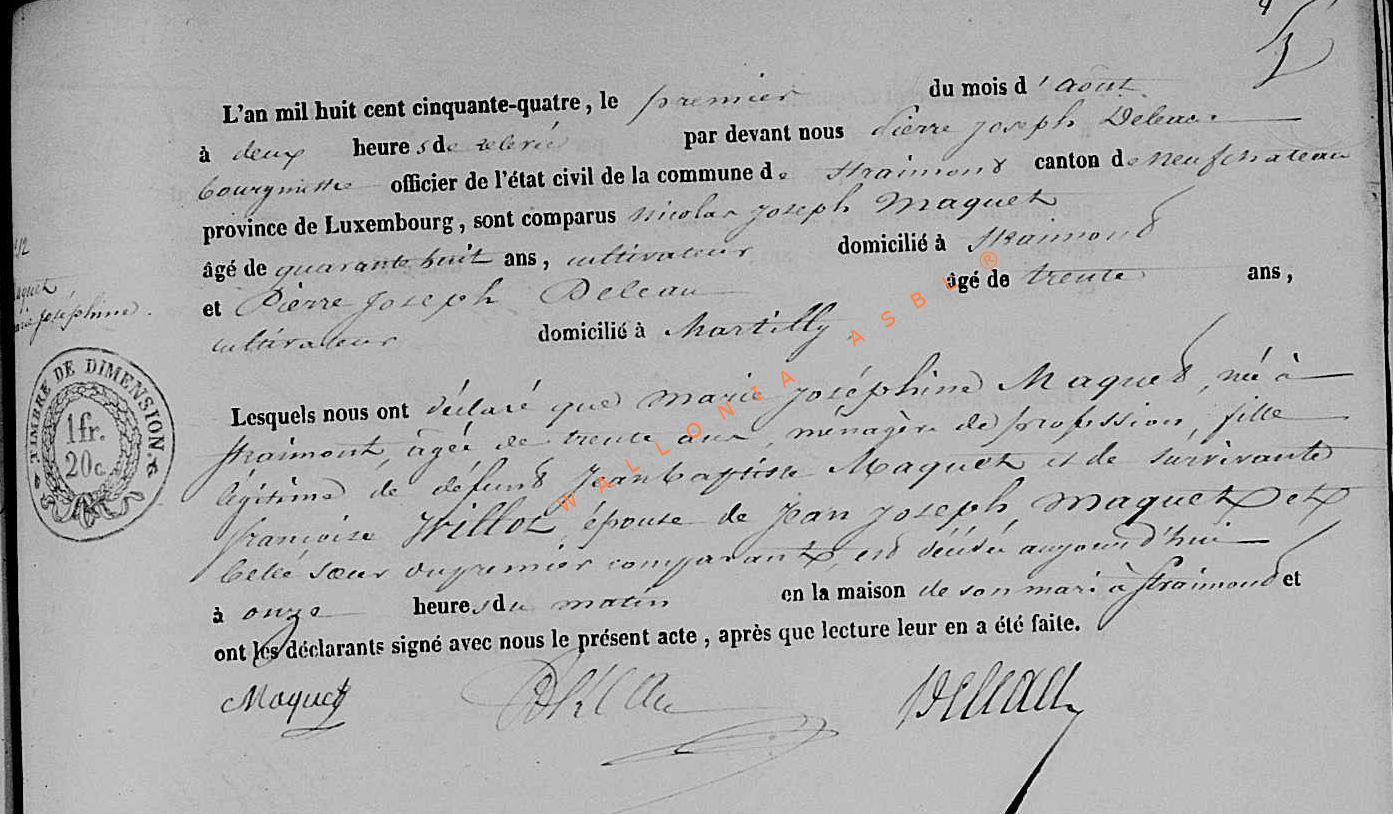 L'an mil huit cent cinquante-quatre, le premier du mois d'août
à deux heures de relevée par devant nous Pierre Joseph Deleau
bourgmestre officier de l'état civil de la commune de Straimont canton de Neufchateau
province de Luxembourg, sont comparus Nicolas Joseph Maquet
âgé de quarante huit ans, cultivateur domicilié à Straimont
et Pierre Joseph Deleau âgé de trente ans,
cultivateur domicilié à Martilly
Lesquels nous ont déclaré que Marie Joséphine Maquet, née à
Straimont, âgée de trente ans, ménagère de profession, fille
légitime de défunt Jean baptiste Maquet et de survivante
françoise Willot, épouse de Jean Joseph Maquet et
belle sœur du premier comparant, est décédée aujourd'hui
à onze heures du matin en la maison de son mari à Straimont et
ont les déclarants signé avec nous le présent acte, après que lecture leur en a été faite.
Maquet Deleau Deleau
Joséphine.
TIMBRE DE DIMENSION.
1 fr.
20 c.
WALLONIA ASBL ®